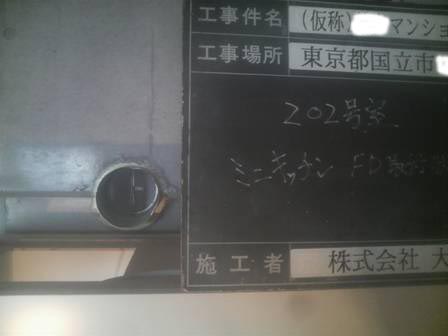 工事件名 (仮称) マンショ
工事場所 東京都国立市
202号室
ミニキッチン FD取付
施工者 株式会社 大